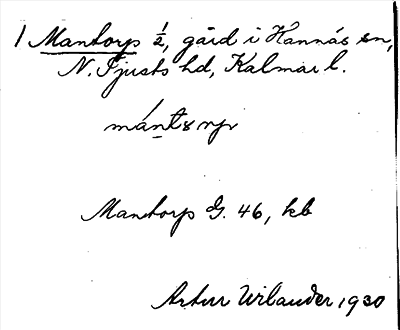 1 Mantorp ½, gård i Hannäs sn,
N. Tjusts hd, Kalmar l.
Mantorp G. 46, kb
Artur Wilander 1930